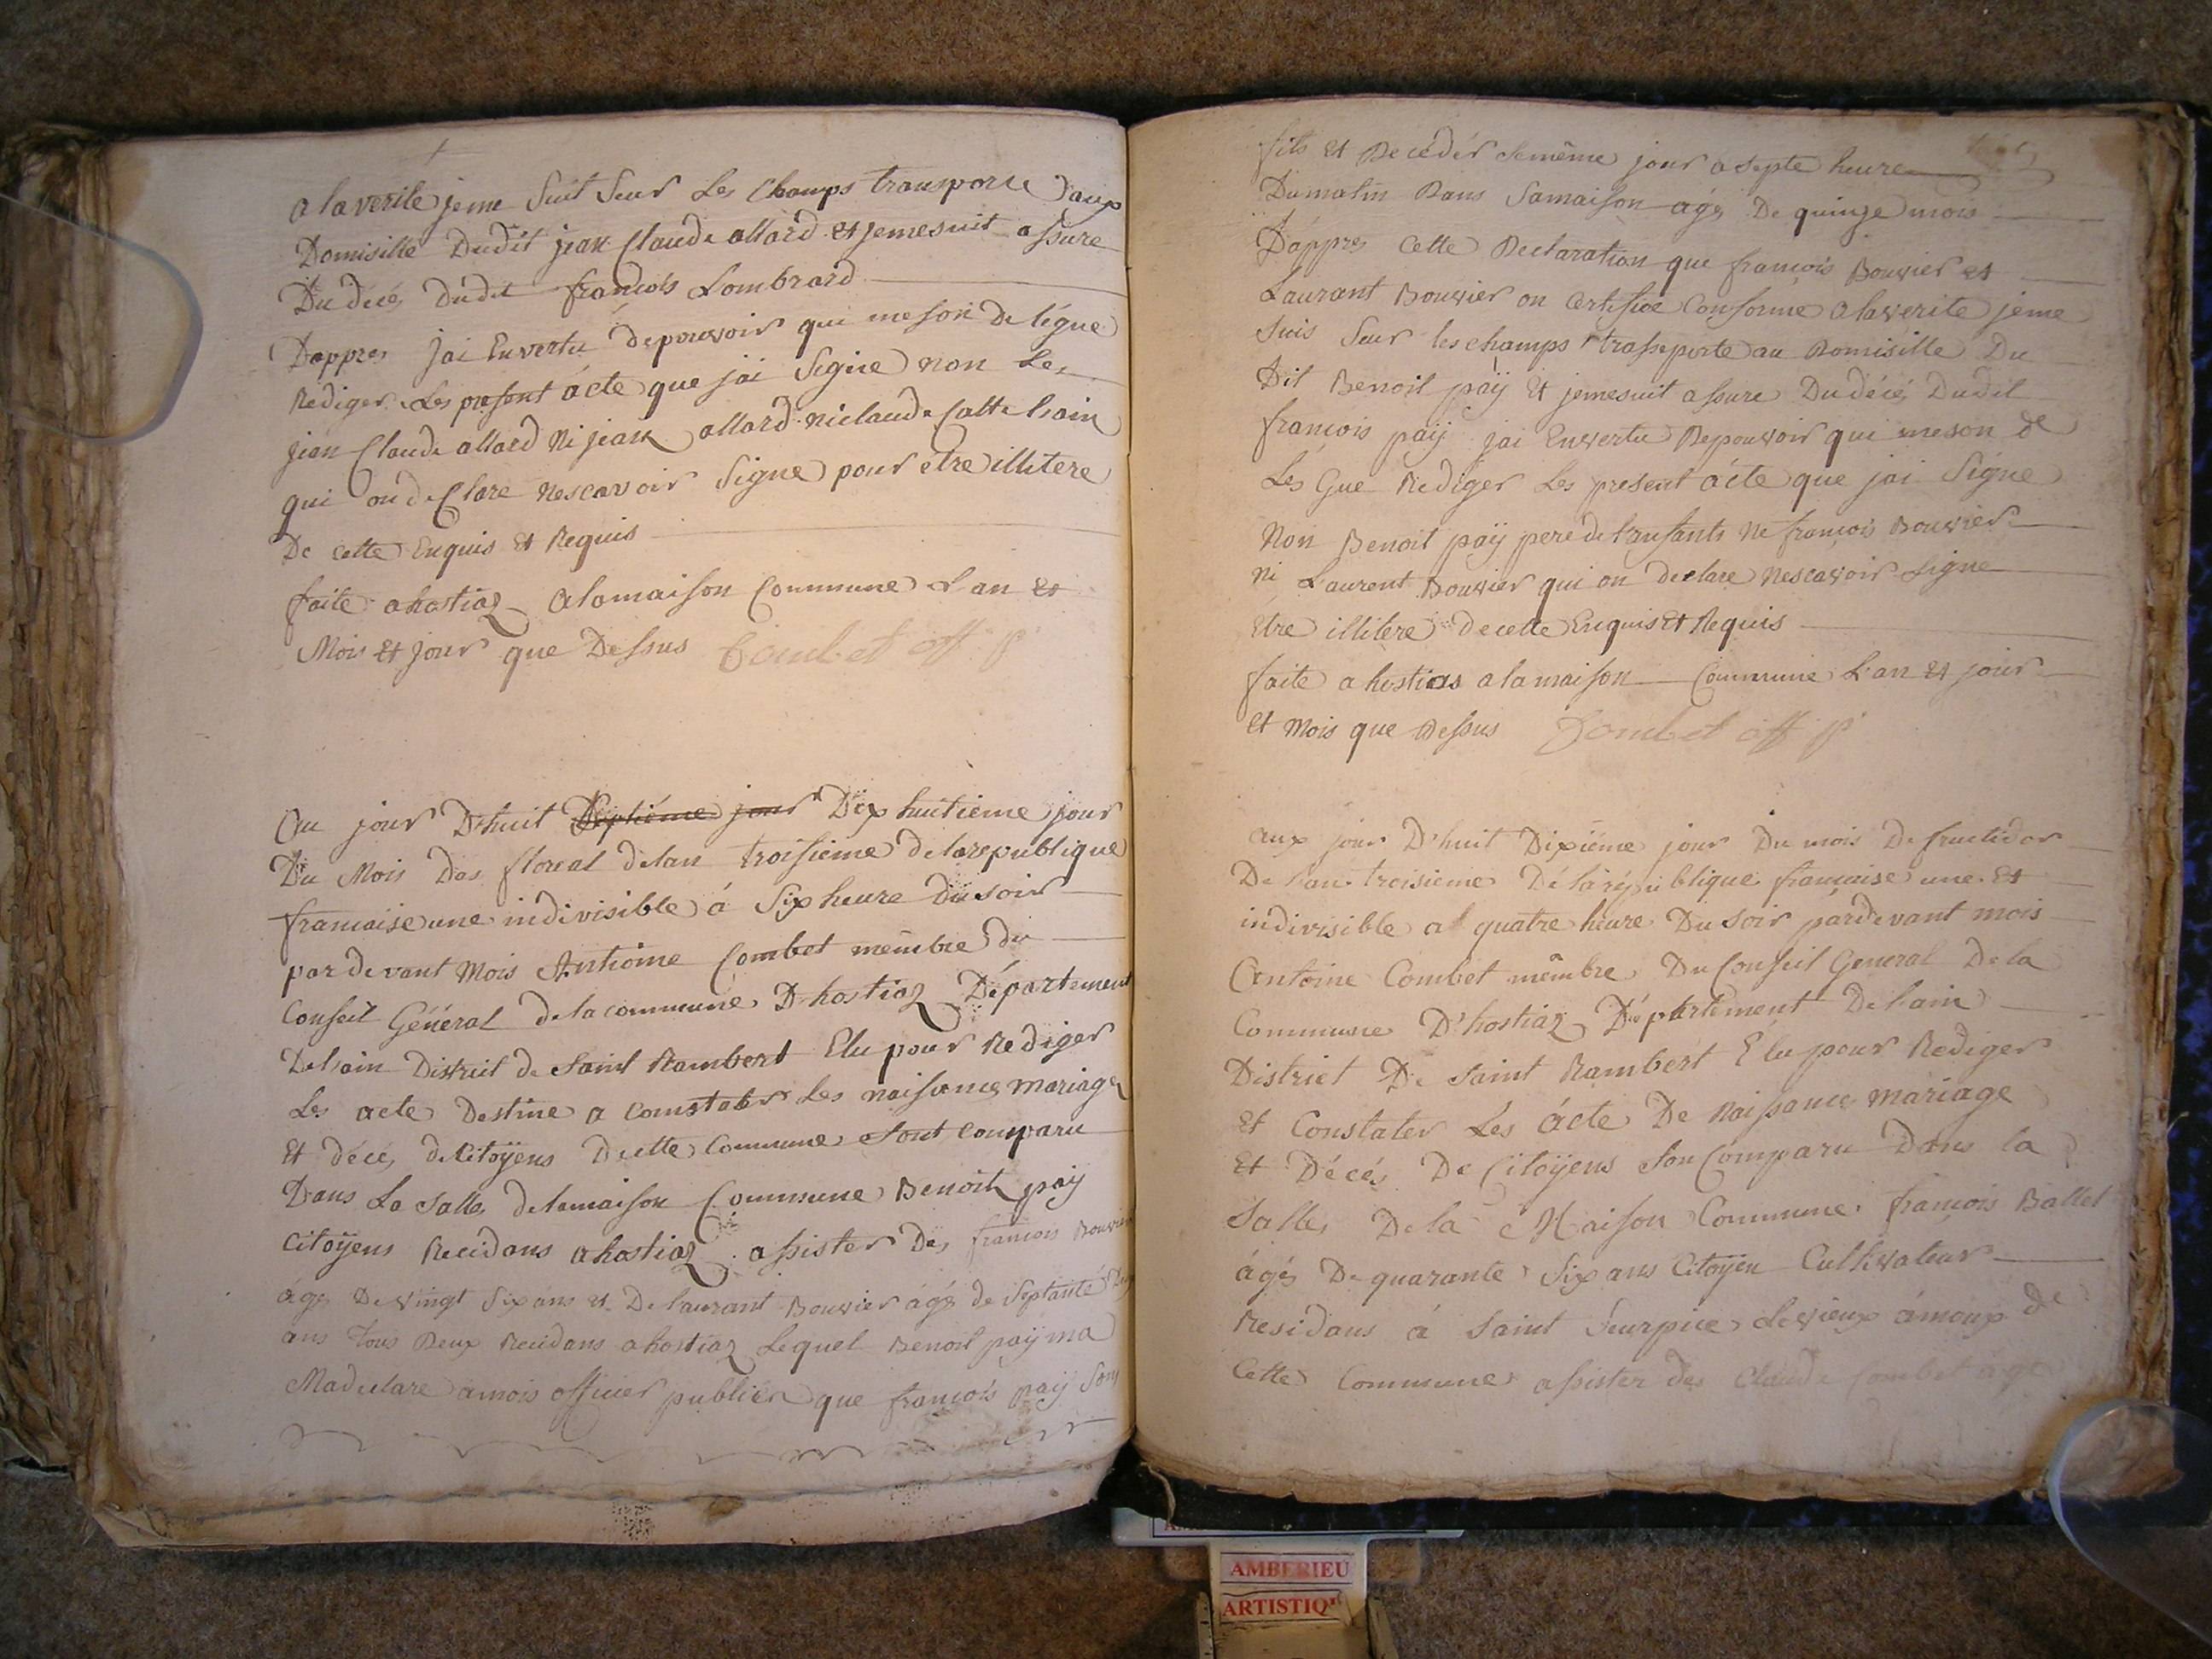 a la verite jeme Suit Seur Les Champs transporte aux
Domisille Dudit jean Claude allard et jemesuit assure
Du décés dudit francois Lombrard
Dappres jai Envertu depouvoir qui meson delégue
Rediger Les present ácte que jai Signe non Les
jean Claude allard Ni jean allard niclaude
qui on declare Nescavoir Signe pour être illitere
De cette Enquis et Requis
faite a hostiaz a lamaison Commune L'an et
Mois et jour que Dessus Combet off p
Au jour D'huit Septiéme jour Dix huitieme jour
Du Mois Des floreal delan troisieme delarepublique
francaise une indivisible á Six heure du soir
par devant Mois Antoine Combet membre du
Conseil Général dela commune D'hostiaz Département
Delain District de Saint Rambert Elu pour Rediger
Les acte Destine a Comstater Les naisance mariage
Et décés de Citoÿens Dcette Commune Sont comparu
Dans La Salle delamaison Commune Benoit paÿ
Citoÿens Recidans a hostiaz assister Des francois Bouvier
áges De vingt Six ans et De laurant Bouvier ágé de Septante
ans tous Deux Recidans a hostiaz Lequel Benoit paÿ ma
Madeclare a mois officier publiér que francois paÿ Son
fils et Decéder lemême jour a septe heure
Dumatin Dans Samaison agé De quinze mois
D'áppres Cette Declaration que francois Bouvier et
Laurant Bouvier on Certifice Conforme a la verite jeme
Suis Seur les champs trasseporte au Domisille Du
Dit Benoit paÿ Et jemesuit assure Du décés Dudit
francois paÿ jai Envertu Depouvoir qui meson de
Lés Gue Rediger Les present ácte que jai Signe
Non Benoit paÿ pere de l'anfants Ne francois Bouvier
Ni Laurent Bouvier qui on declare Nescavoir Signe
Etre illitere de cette Enquis Et Requis
faite a hostias a la maison Commune L'an et jour
Et Mois que Dessus Combet off p
aux jour D'huit Dixiéme jour Du mois De fructidor
De l'an troisieme Dé la république francaise une et
indivisible a quatre heure Du Soir pardevant mois
Antoine Combet mêmbre Du Conseil General De la
Commune D'hostiaz Département De l'ain
District De Saint Rambert Elu pour Rediger
Et Constater Les ácte De Naissance mariage
Et Décés De Citoÿens Son Comparu Dans la
Salle De la Maison Commune francois Ballet
ágés De quarante Six ans Citoÿen Cultivateur
Residans á Saint Seurpice Levieux ámoux de
Cette Commune assister des Claude Combet age
AMBERIEU
ARTISTIQ